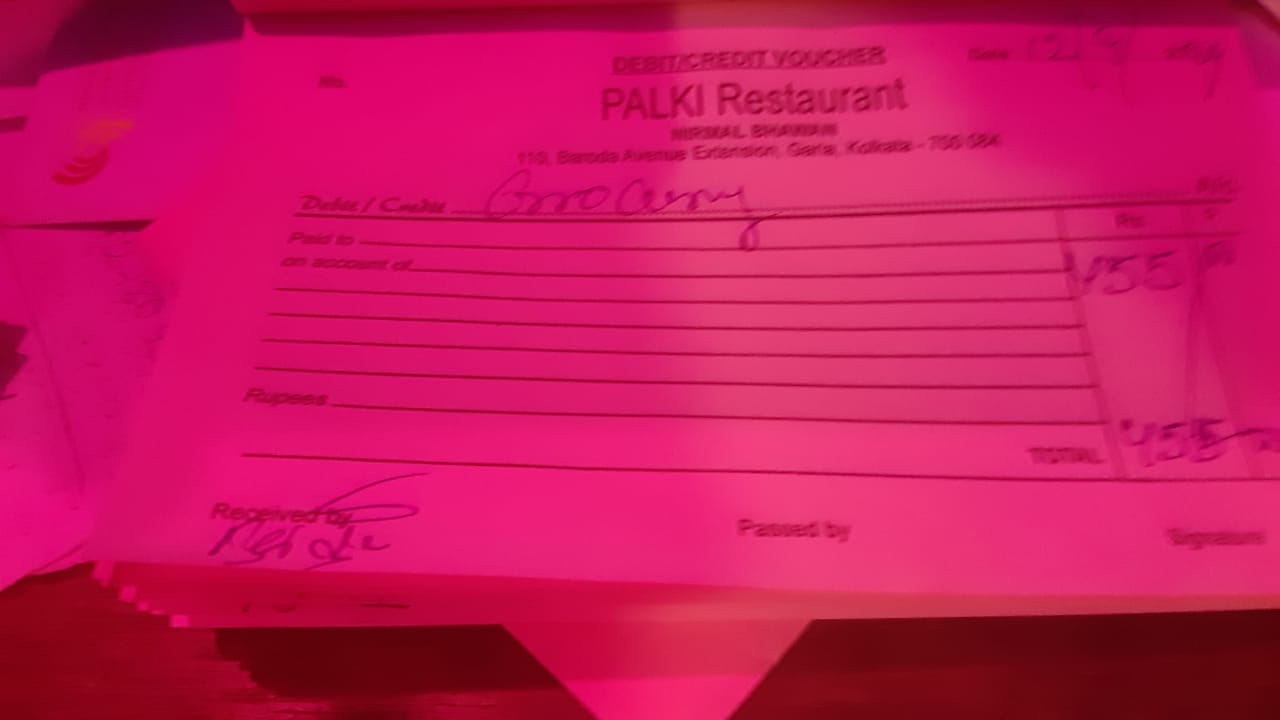 DEBIT/CREDIT VOUCHER
No.
Date 12/
PALKI Restaurant
NIRMAL BHAWAN
110, Baroda Avenue Extension, Garia, Kolkata - 700 084
Debit / Credit Grocery
Rs.
Paid to
on account of
455 00
Rupees
TOTAL 455
Received by
Passed by
Signature